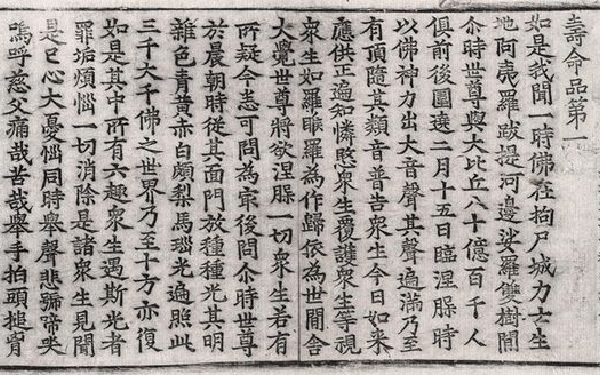 壽命品第一
如是我聞一時佛在拘尸城力士生
地阿夷羅跋提河邊娑羅雙樹間
尒時世尊與大比丘八十億百千人
俱前後圍遶二月十五日臨涅槃時
以佛神力出大音聲其聲遍滿乃至
有頂隨其類音普告衆生今日如来
應供正遍知憐愍衆生覆護衆生等視
衆生如羅睺羅為作歸依為世間舍
大覺世尊將欲涅槃一切衆生若有
所疑今悉可問為冣後問尒時世尊
於晨朝時從其面門放種種光其明
雜色青黄赤白頗梨馬瑙光遍照此
三千大千佛之世界乃至十方亦復
如是其中所有六趣衆生遇斯光者
罪垢煩惱一切消除是諸衆生見聞
是已心大憂惱同時舉聲悲號啼哭
嗚呼慈父痛哉苦哉舉手拍頭搥胷